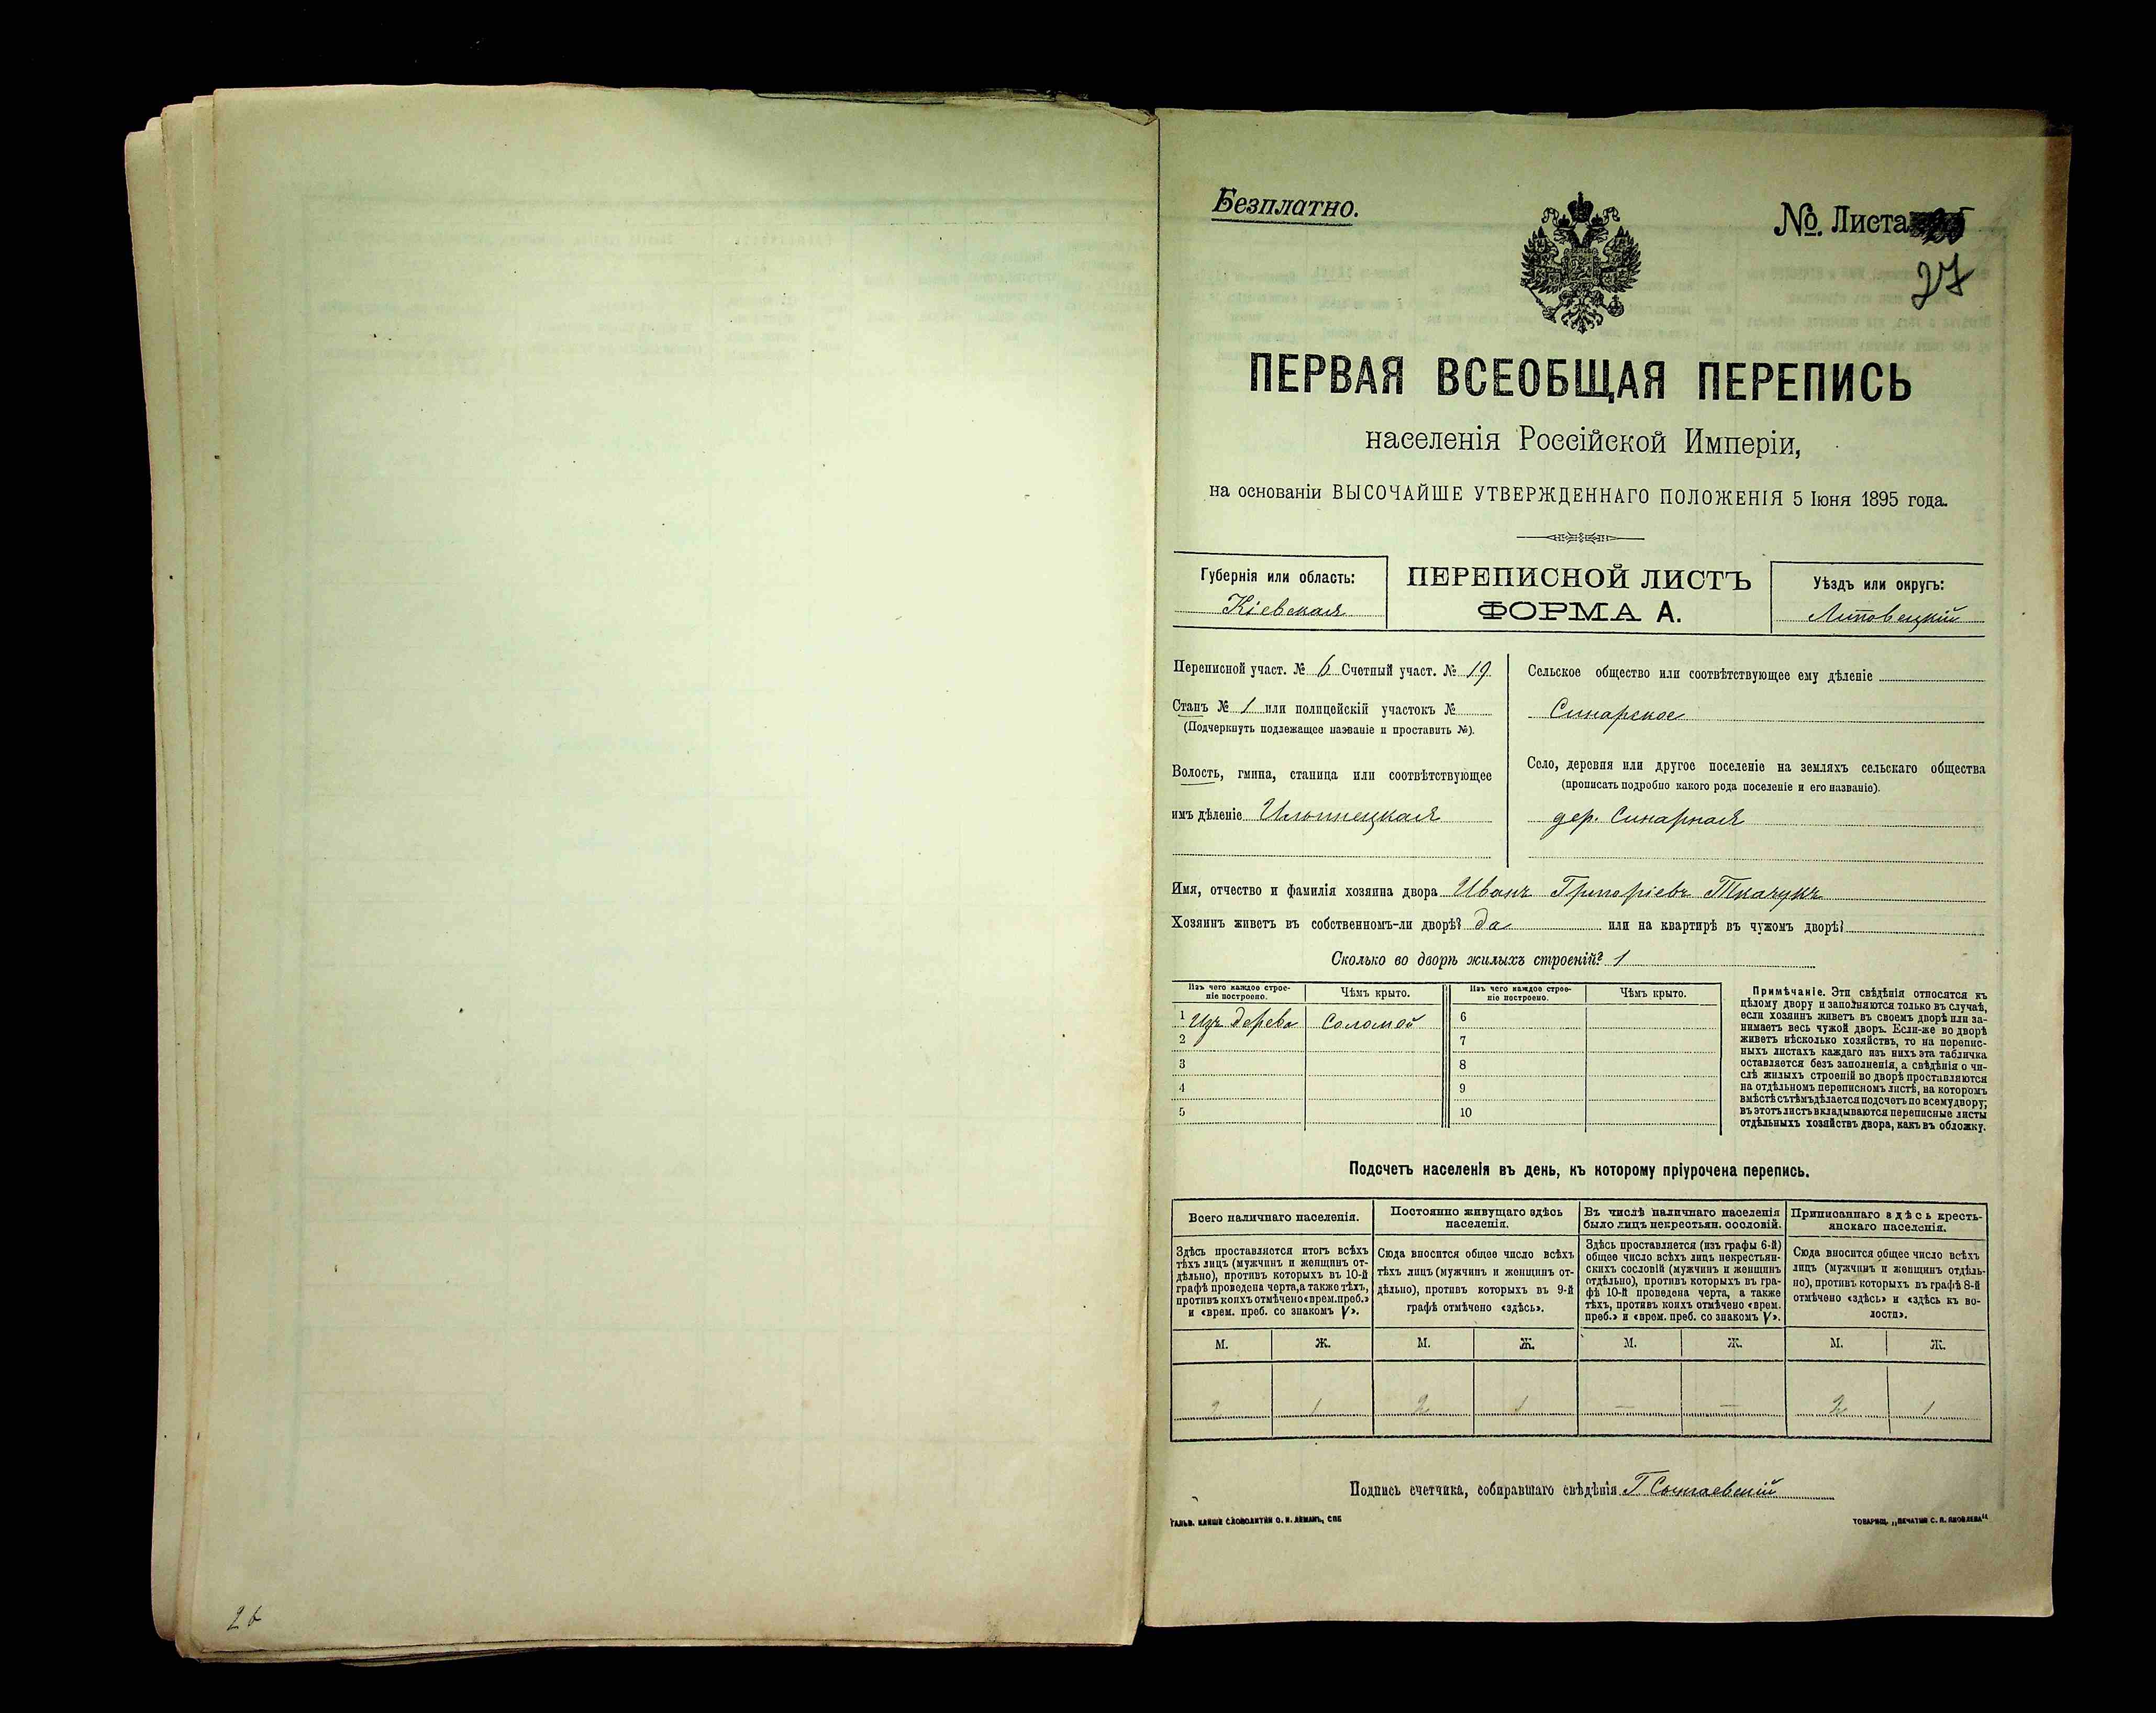 Безплатно.
№. Листа 25
27
ПЕРВАЯ ВСЕОБЩАЯ ПЕРЕПИСЬ
населенія Россійской Имперіи,
на основаніи ВЫСОЧАЙШЕ УТВЕРЖДЕННАГО ПОЛОЖЕНІЯ 5 Іюня 1895 года.
Губернія или область:
Кіевская
ПЕРЕПИСНОЙ ЛИСТЪ
ФОРМА А.
Уѣздъ или округъ:
Липовецкій
Переписной участ. № 6 Счетный участ. № 19
Станъ № 1 или полицейскій участокъ №
(Подчеркнуть подлежащее названіе и проставить №).
Волость, гмина, станица или соотвѣтствующее
имъ дѣленіе Ильинецкая
Сельское общество или соотвѣтствующее ему дѣленіе
Синарское
Село, деревня или другое поселеніе на земляхъ сельскаго общества
(прописать подробно какого рода поселеніе и его названіе).
дер. Синарная
Имя, отчество и фамилія хозяина двора Иванъ Григоріевъ Ткачукъ
Хозяинъ живетъ въ собственномъ-ли дворѣ? да или на квартирѣ въ чужомъ дворѣ?
Сколько во дворѣ жилыхъ строеній? 1
Изъ чего каждое строе-
ніе построено.
Чѣмъ крыто.
Изъ чего каждое строе-
ніе построено.
Чѣмъ крыто.
1 Изъ дерева Соломой 6
2 7
3 8
4 9
5 10
Примѣчаніе. Эти свѣдѣнія относятся къ
цѣлому двору и заполняются только въ случаѣ,
если хозяинъ живетъ въ своемъ дворѣ или за-
нимаетъ весь чужой дворъ. Если-же во дворѣ
живетъ нѣсколько хозяйствъ, то на перепис-
ныхъ листахъ каждаго изъ нихъ эта табличка
оставляется безъ заполненія, а свѣдѣнія о чи-
слѣ жилыхъ строеній во дворѣ проставляются
на отдѣльномъ переписномъ листѣ, на которомъ
вмѣстѣ съ тѣмъ дѣлается подсчетъ по всему двору;
въ этотъ листъ вкладываются переписные листы
отдѣльныхъ хозяйствъ двора, какъ въ обложку.
Подсчетъ населенія въ день, къ которому пріурочена перепись.
Всего наличнаго населенія.
Здѣсь проставляется итогъ всѣхъ
тѣхъ лицъ (мужчинъ и женщинъ от-
дѣльно), противъ которыхъ въ 10-й
графѣ проведена черта, а также тѣхъ,
противъ коихъ отмѣчено «врем. преб.»
и «врем. преб. со знакомъ V».
Постоянно живущаго здѣсь
населенія.
Сюда вносится общее число всѣхъ
тѣхъ лицъ (мужчинъ и женщинъ от-
дѣльно), противъ которыхъ въ 9-й
графѣ отмѣчено «здѣсь».
Въ числѣ наличнаго населенія
было лицъ некрестьян. сословій.
Здѣсь проставляется (изъ графы 6-й)
общее число всѣхъ лицъ некрестьян-
скихъ сословій (мужчинъ и женщинъ
отдѣльно), противъ которыхъ въ гра-
фѣ 10-й проведена черта, а также
тѣхъ, противъ коихъ отмѣчено «врем.
преб.» и «врем. преб. со знакомъ V».
Приписаннаго здѣсь кресть-
янскаго населенія.
Сюда вносится общее число всѣхъ
лицъ (мужчинъ и женщинъ отдѣль-
но), противъ которыхъ въ графѣ 8-й
отмѣчено «здѣсь» и «здѣсь къ во-
лости».
М. Ж. М. Ж. М. Ж. М. Ж.
2 1 2 1 — — 2 1
Подпись счетчика, собиравшаго свѣдѣнія Г.
ГАЛЬВ. КЛИШЕ СЛОВОЛИТНИ О. И. ЛЕМАНЪ, СПБ
ТОВАРИЩ. „ПЕЧАТНЯ С. П. ЯКОВЛЕВА“
26